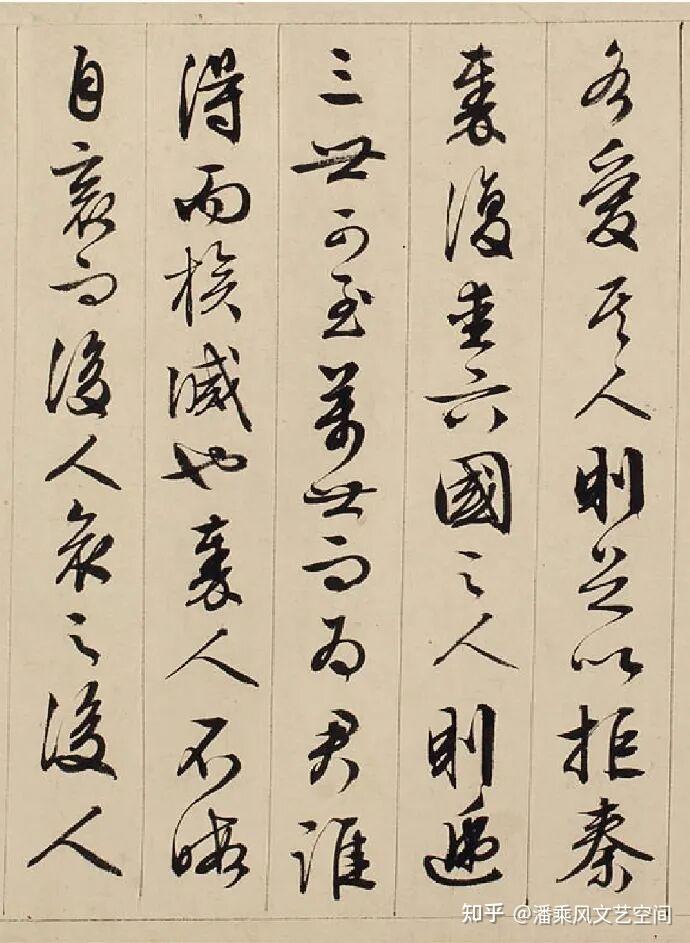 各愛其人則足以拒秦
秦復愛六國之人則遞
三世可至萬世而為君誰
得而族滅也秦人不暇
自哀而後人哀之後人
知乎 @潘乘风文艺空间